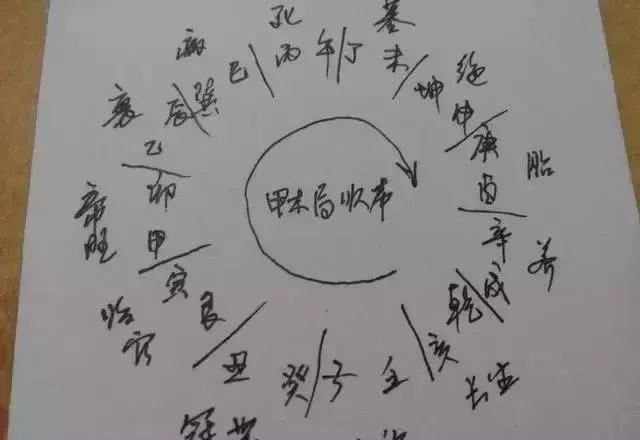 甲木局顺布
死
墓
病
衰
帝旺
临官
冠带
长生
养
胎
绝
丙午
丁未
坤申
庚酉
辛戌
乾亥
壬子
癸丑
艮寅
甲卯
乙辰
巽巳